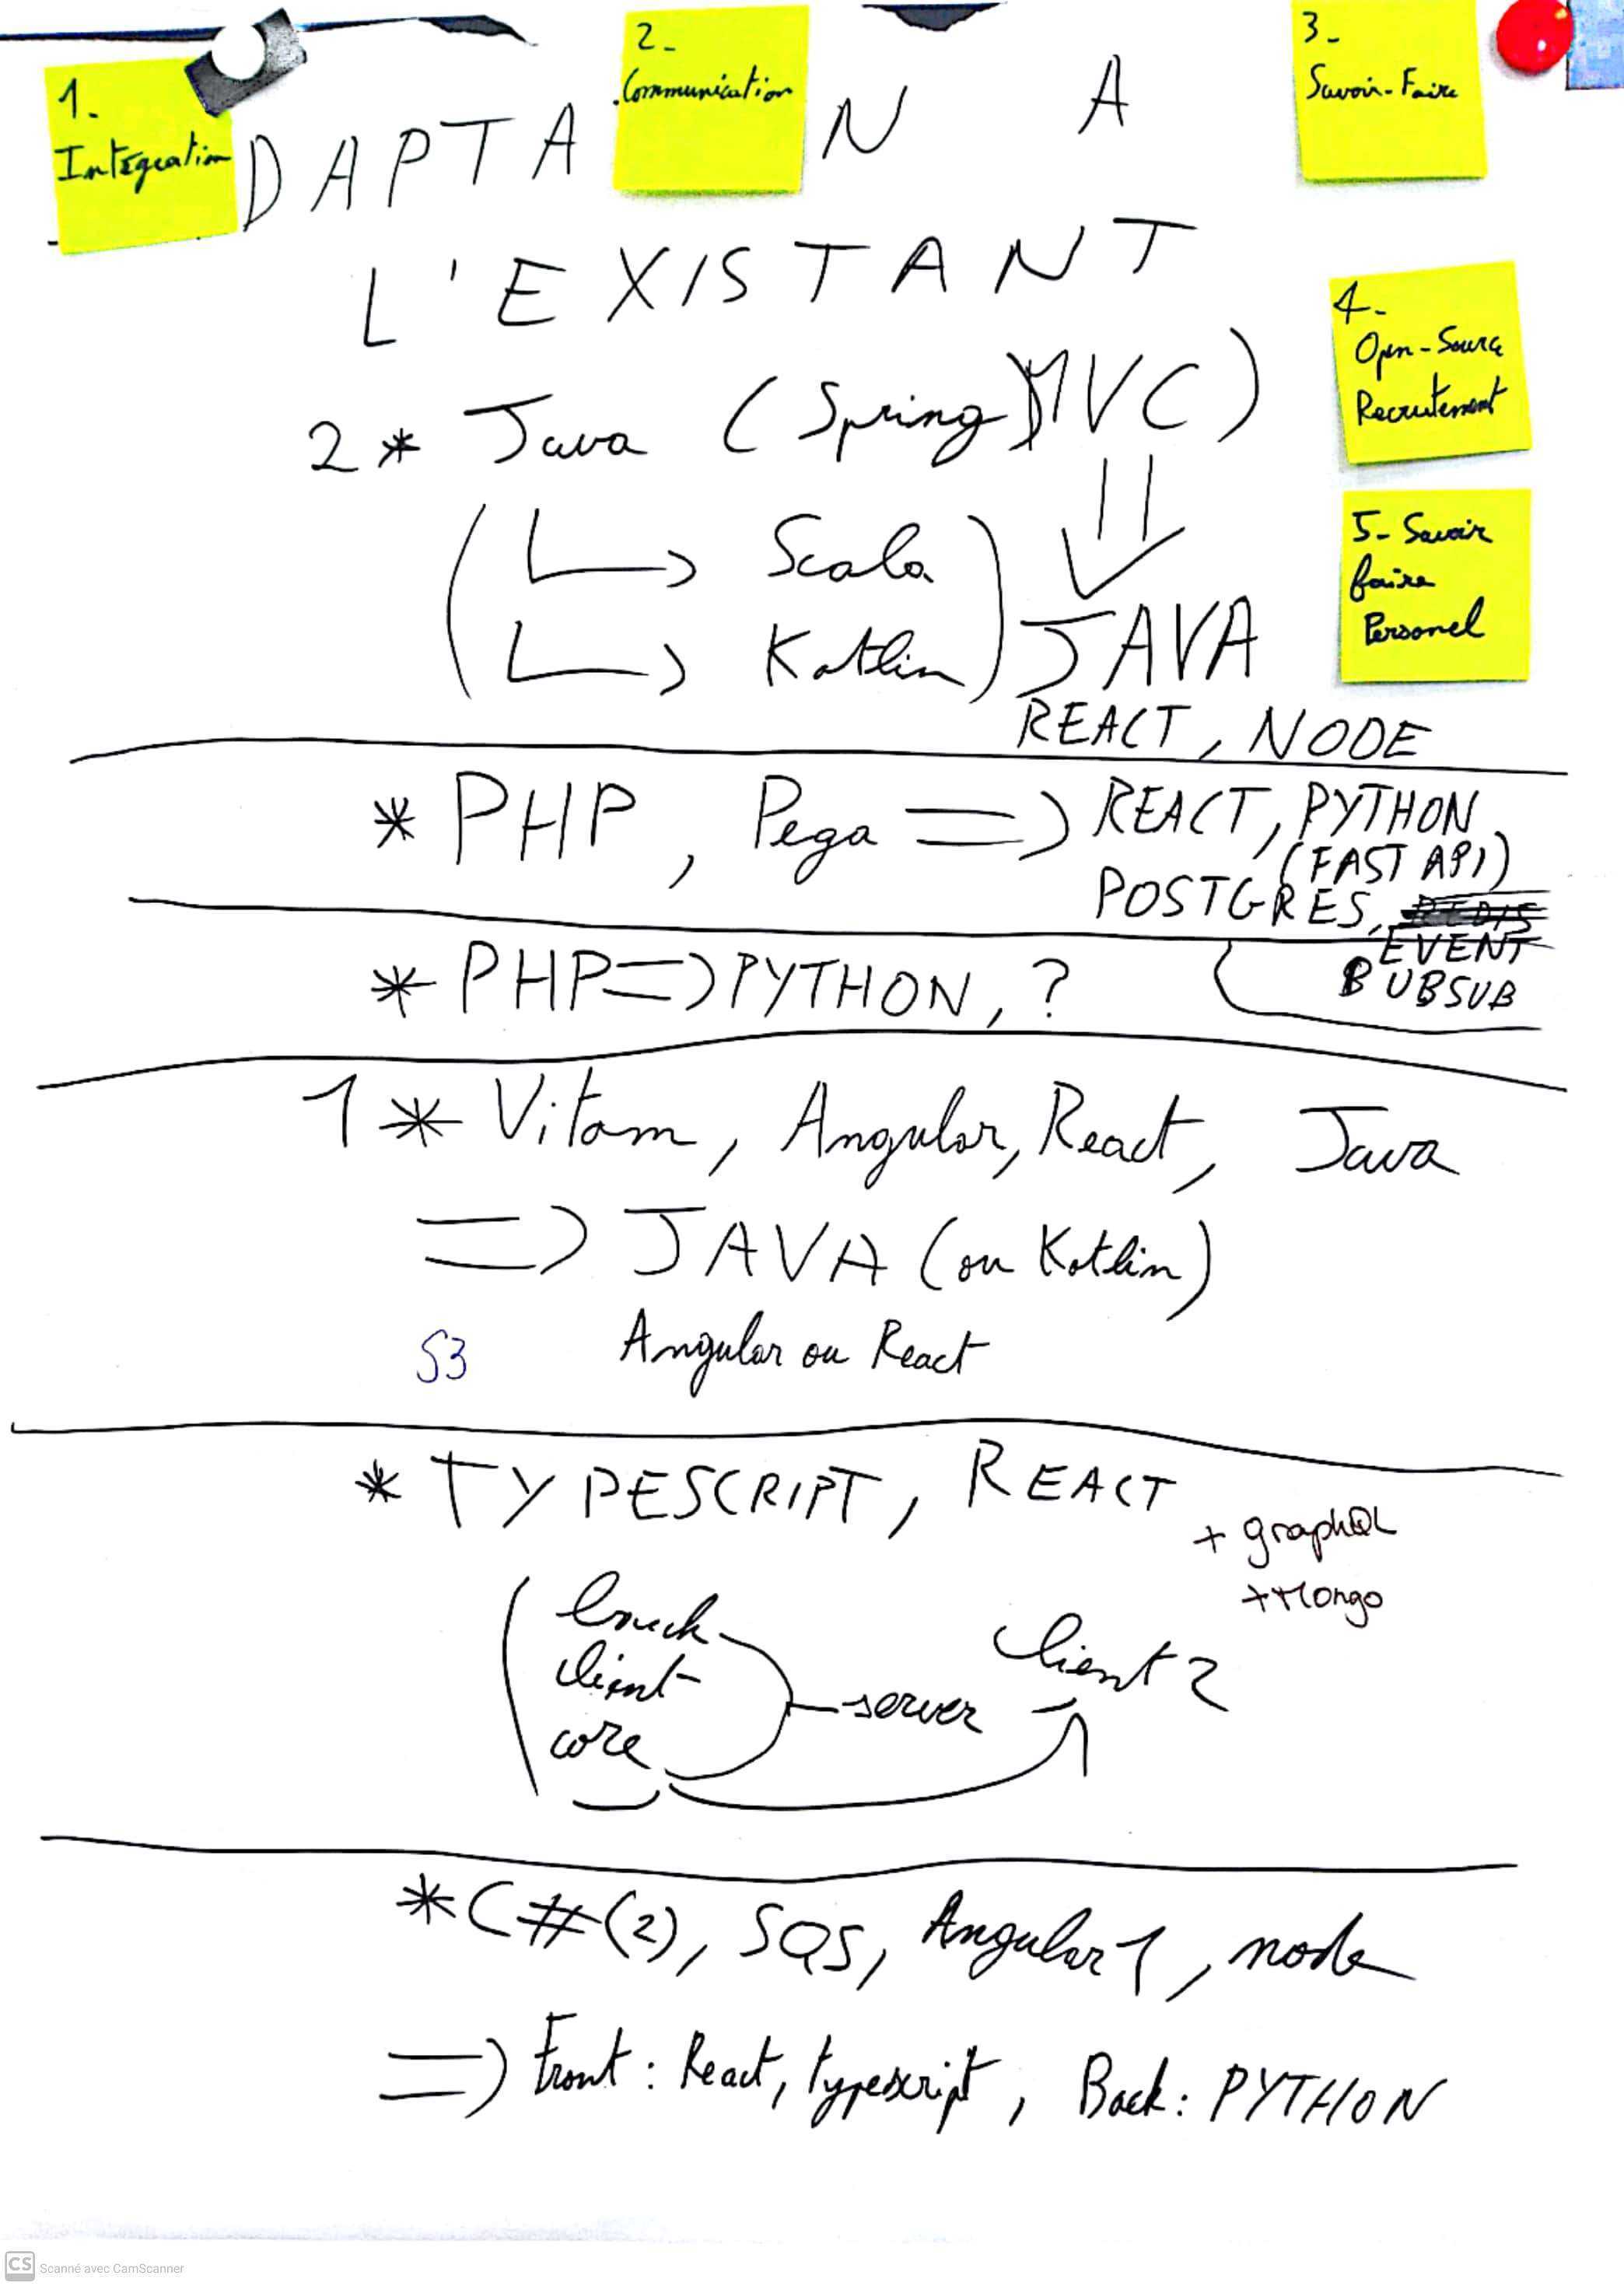 1-
Intégration
2-
Communication
3-
Savoir-Faire
DAPTA N A
L'EXISTANT
4-
Open-Source
Recrutement
2* Java (Spring MVC)
5- Savoir
faire
Personel
(↳ Scala
↳ Kotlin) JAVA
REACT, NODE
* PHP, Pega => REACT, PYTHON
(FAST API)
POSTGRES,
EVENT
PUBSUB
* PHP => PYTHON, ?
1* Vitam, Angular, React, Java
=> JAVA (ou Kotlin)
S3 Angular ou React
* TYPESCRIPT, REACT
+ graphQL
+ Mongo
client
core
server
client 2
* C#(2), SQS, Angular 1, node
=> Front: React, typescript, Back: PYTHON
CS Scanné avec CamScanner